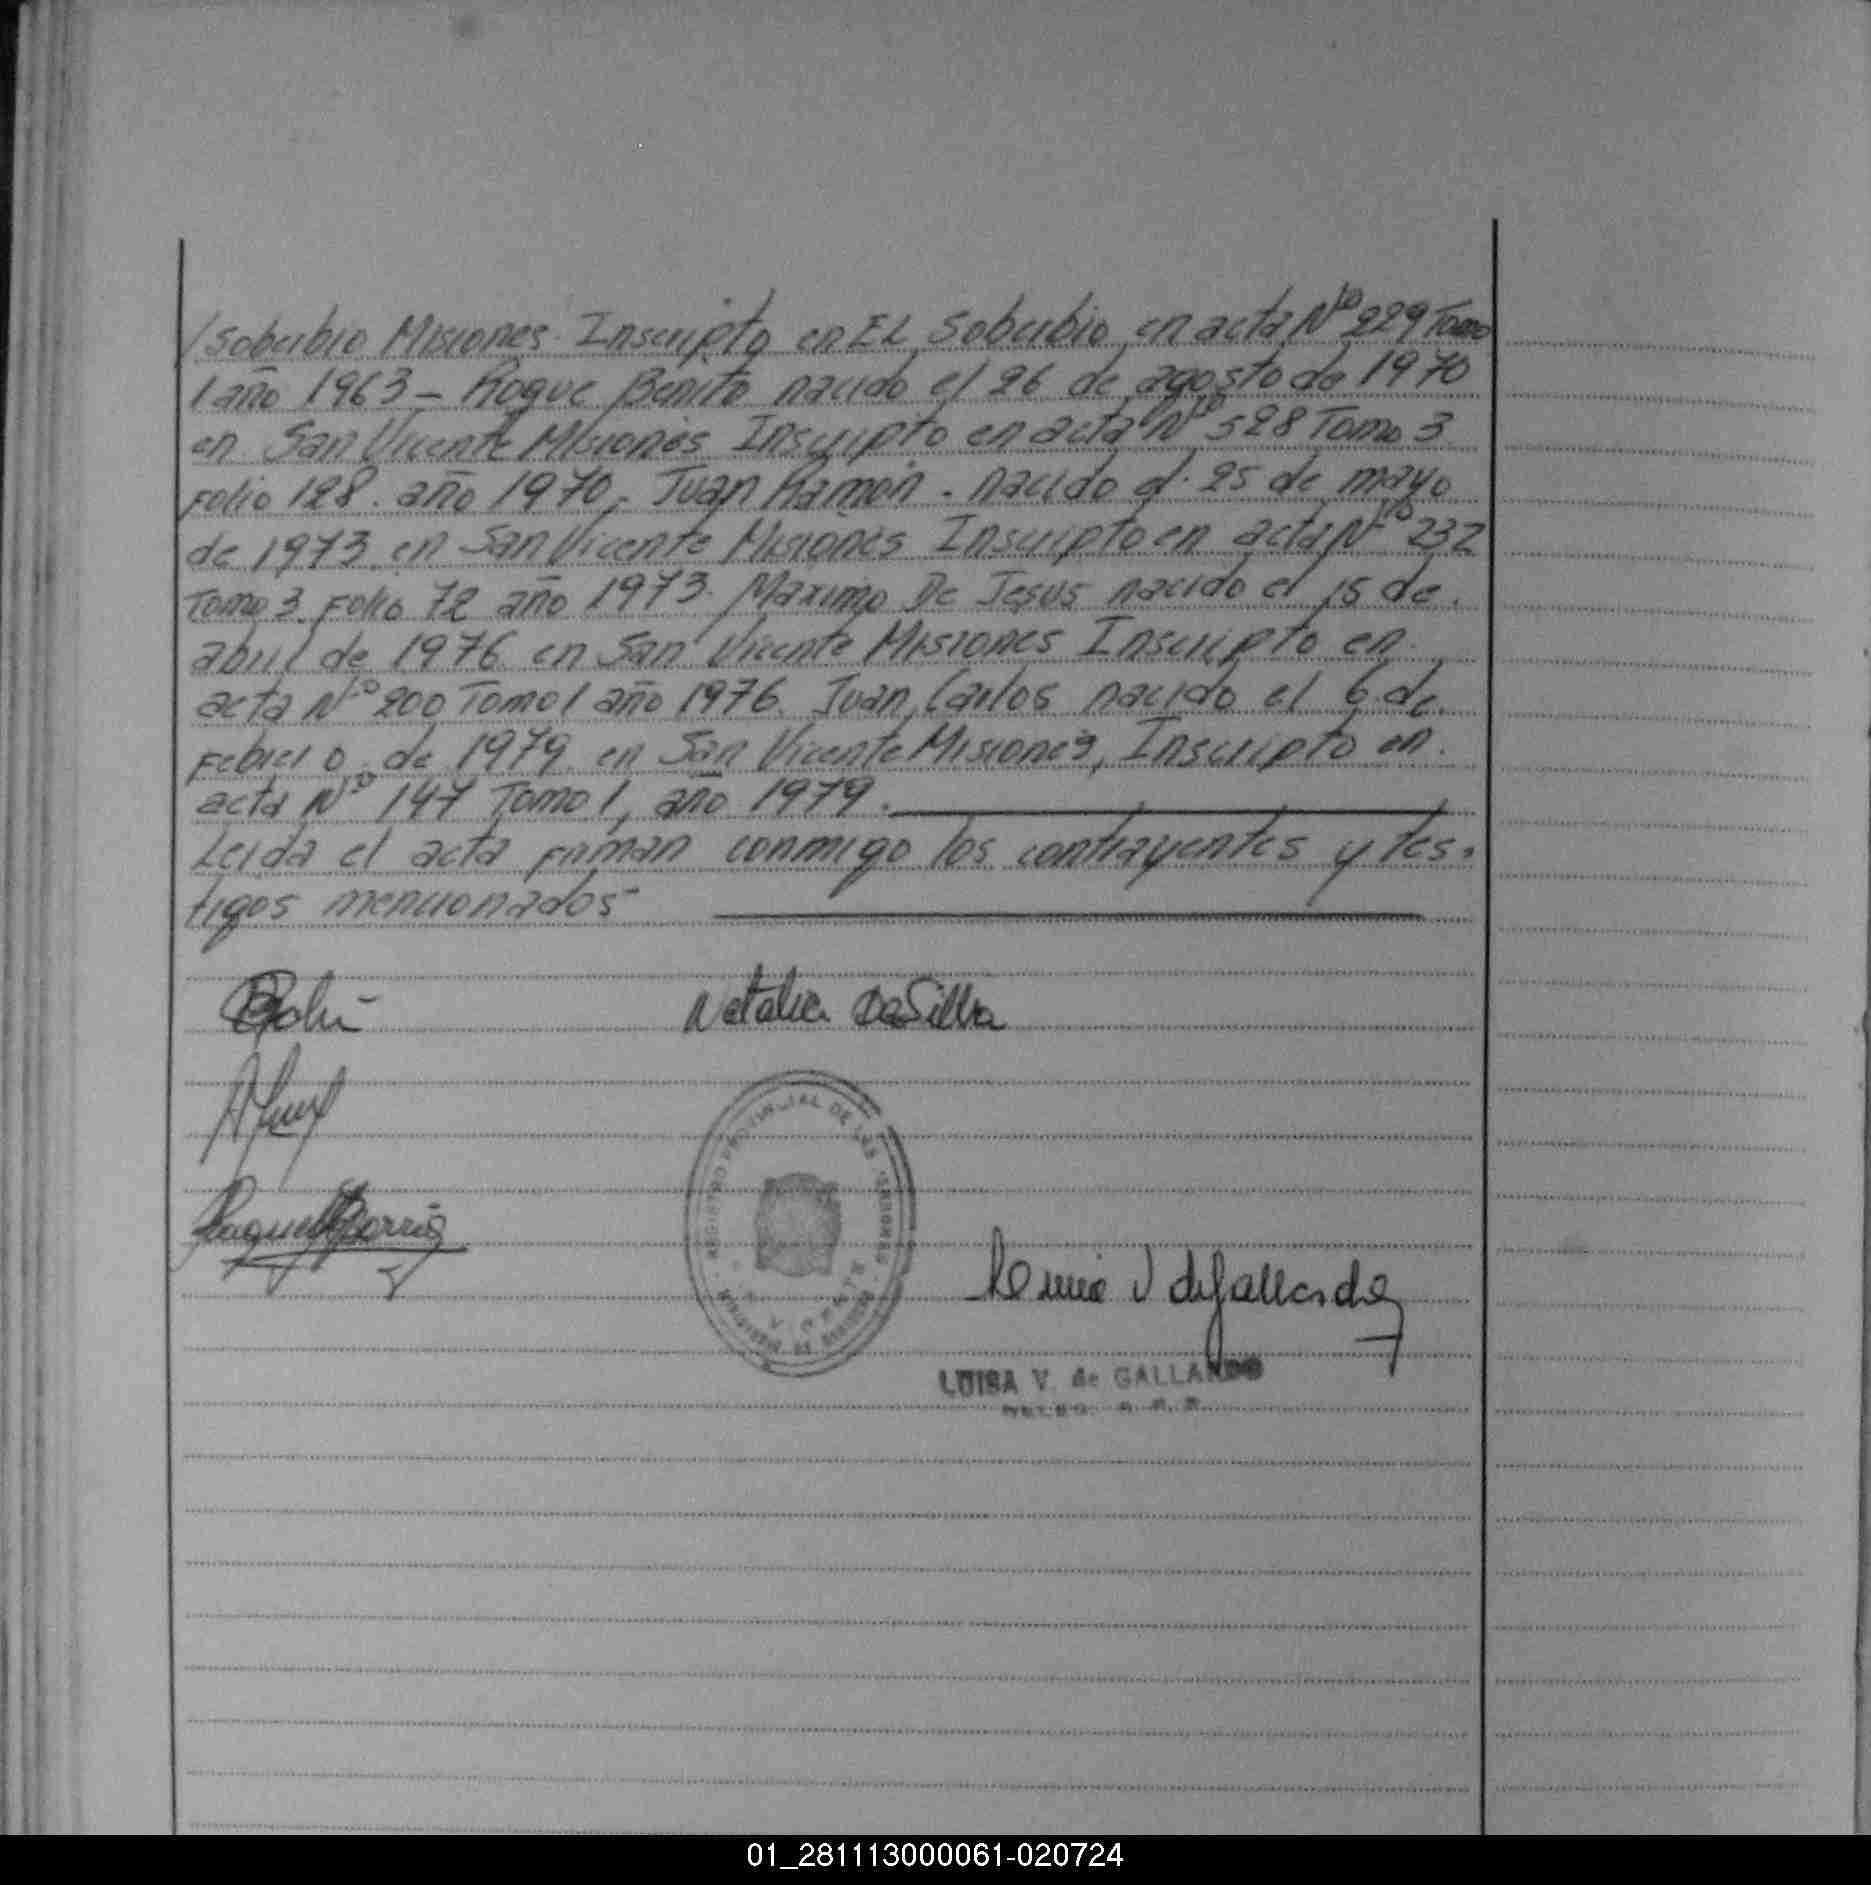 /Soberbio Misiones. Inscripto en EL Soberbio en acta Nº 229 Tomo
1 año 1963 - Roque Benito nacido el 26 de agosto de 1970
en San Vicente Misiones Inscripto en acta Nº 528 Tomo 3
Folio 128. año 1970, Juan Ramón. nacido el. 25 de mayo
de 1973 en San Vicente Misiones Inscripto en acta Nº 232
Tomo 3 Folio 72 año 1973. Maximo De Jesus nacido el 15 de.
abril de 1976 en San Vicente Misiones Inscripto en.
acta Nº 200 Tomo 1 año 1976. Juan Carlos nacido el 6 de.
Febrero de 1979 en San Vicente Misiones, Inscripto en.
acta Nº 147 Tomo 1, año 1979.
Leida el acta firman conmigo los contrayentes y tes-
tigos mencionados-
Natalia DaSilva
REGISTRO PROVINCIAL DE LAS PERSONAS
V. de Gallardo
LUISA V. de GALLARDO
01_281113000061-020724